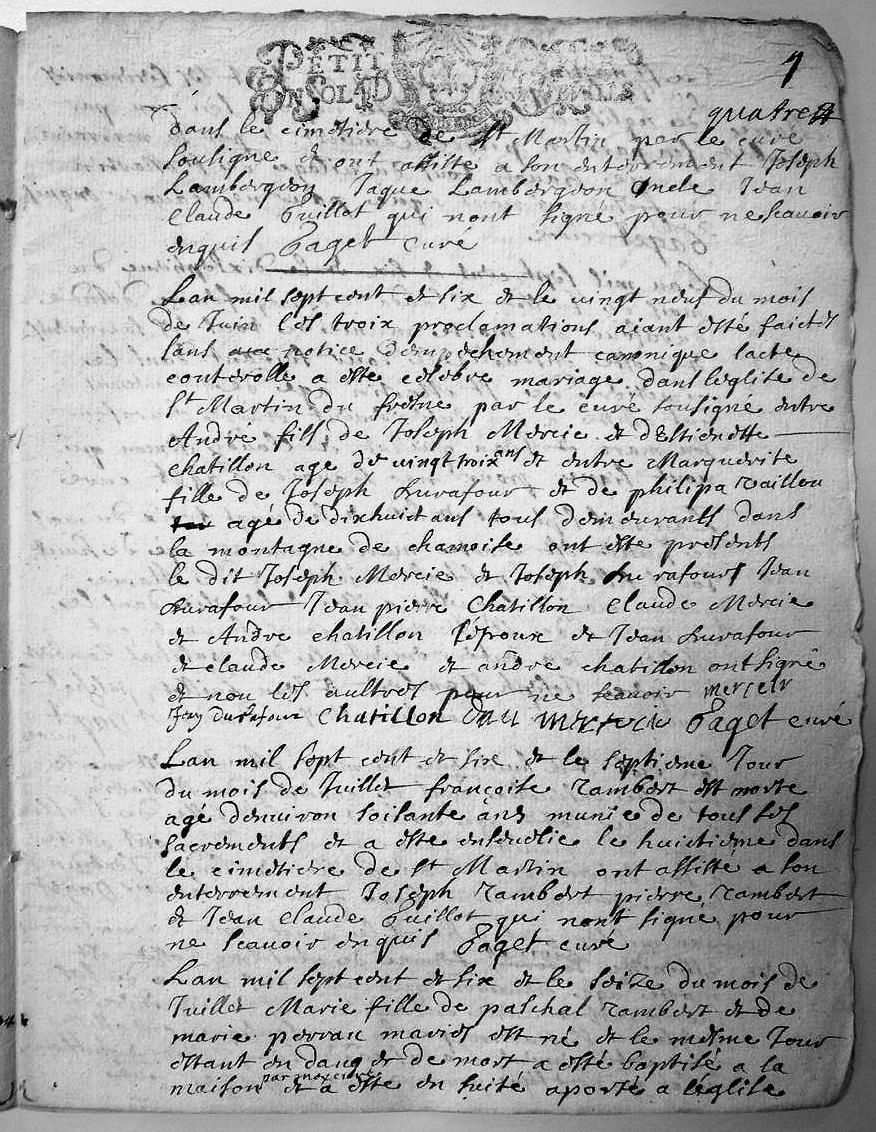 PETIT
SOL
quatre
dans le cimetiere de St Martin par le curé
sousigne et ont assiste a son enterrement Joseph
Lambergeon Jaque Lambergeon oncle Jean
Claude Guillot qui nont signé pour ne scavoir
enquis Paget curé
Lan mil sept cent et six et le vingt neuf du mois
de Juin les troix proclamations aiant esté faictes
sans notice dempechement canonique lacte
conterolle a este celebre mariage dans leglise de
St Martin du fresne par le curé sousigné entre
André fils de Joseph Mercie et dEstienette
chatillon age de vingt troix ans et entre Marguerite
fille de Joseph Durafour et de philipa
agé de dixhuict ans tous demeurants dans
la montagne de chamoise ont este presents
le dit Joseph Mercie et Joseph Durafour Jean
Durafour Jean pierre Chatillon Claude Mercie
et Andre chatillon lépoux et Jean Durafour
et claude Mercie et andre chatillon ont signé
et non les aultres pour ne scavoir mercier
durafour Chatillon Paget curé
Lan mil sept cent et six et le septieme Jour
du mois de Juillet françoise rambert est morte
agé denviron soisante ans munie de tous les
sacrements et a este ensevelie le huictieme dans
le cimetiere de St Martin ont assisté a son
enterrement Joseph rambert pierre rambert
et Jean Claude Guillot qui nont signé pour
ne scavoir enquis Paget curé
Lan mil sept cent et six et le seize du mois de
Juillet Marie fille de paschal rambert et de
marie perran mariés est né et le mesme Jour
estant en danger de mort a esté baptisé a la
maison par moy curé et a este en suité aporté a leglise